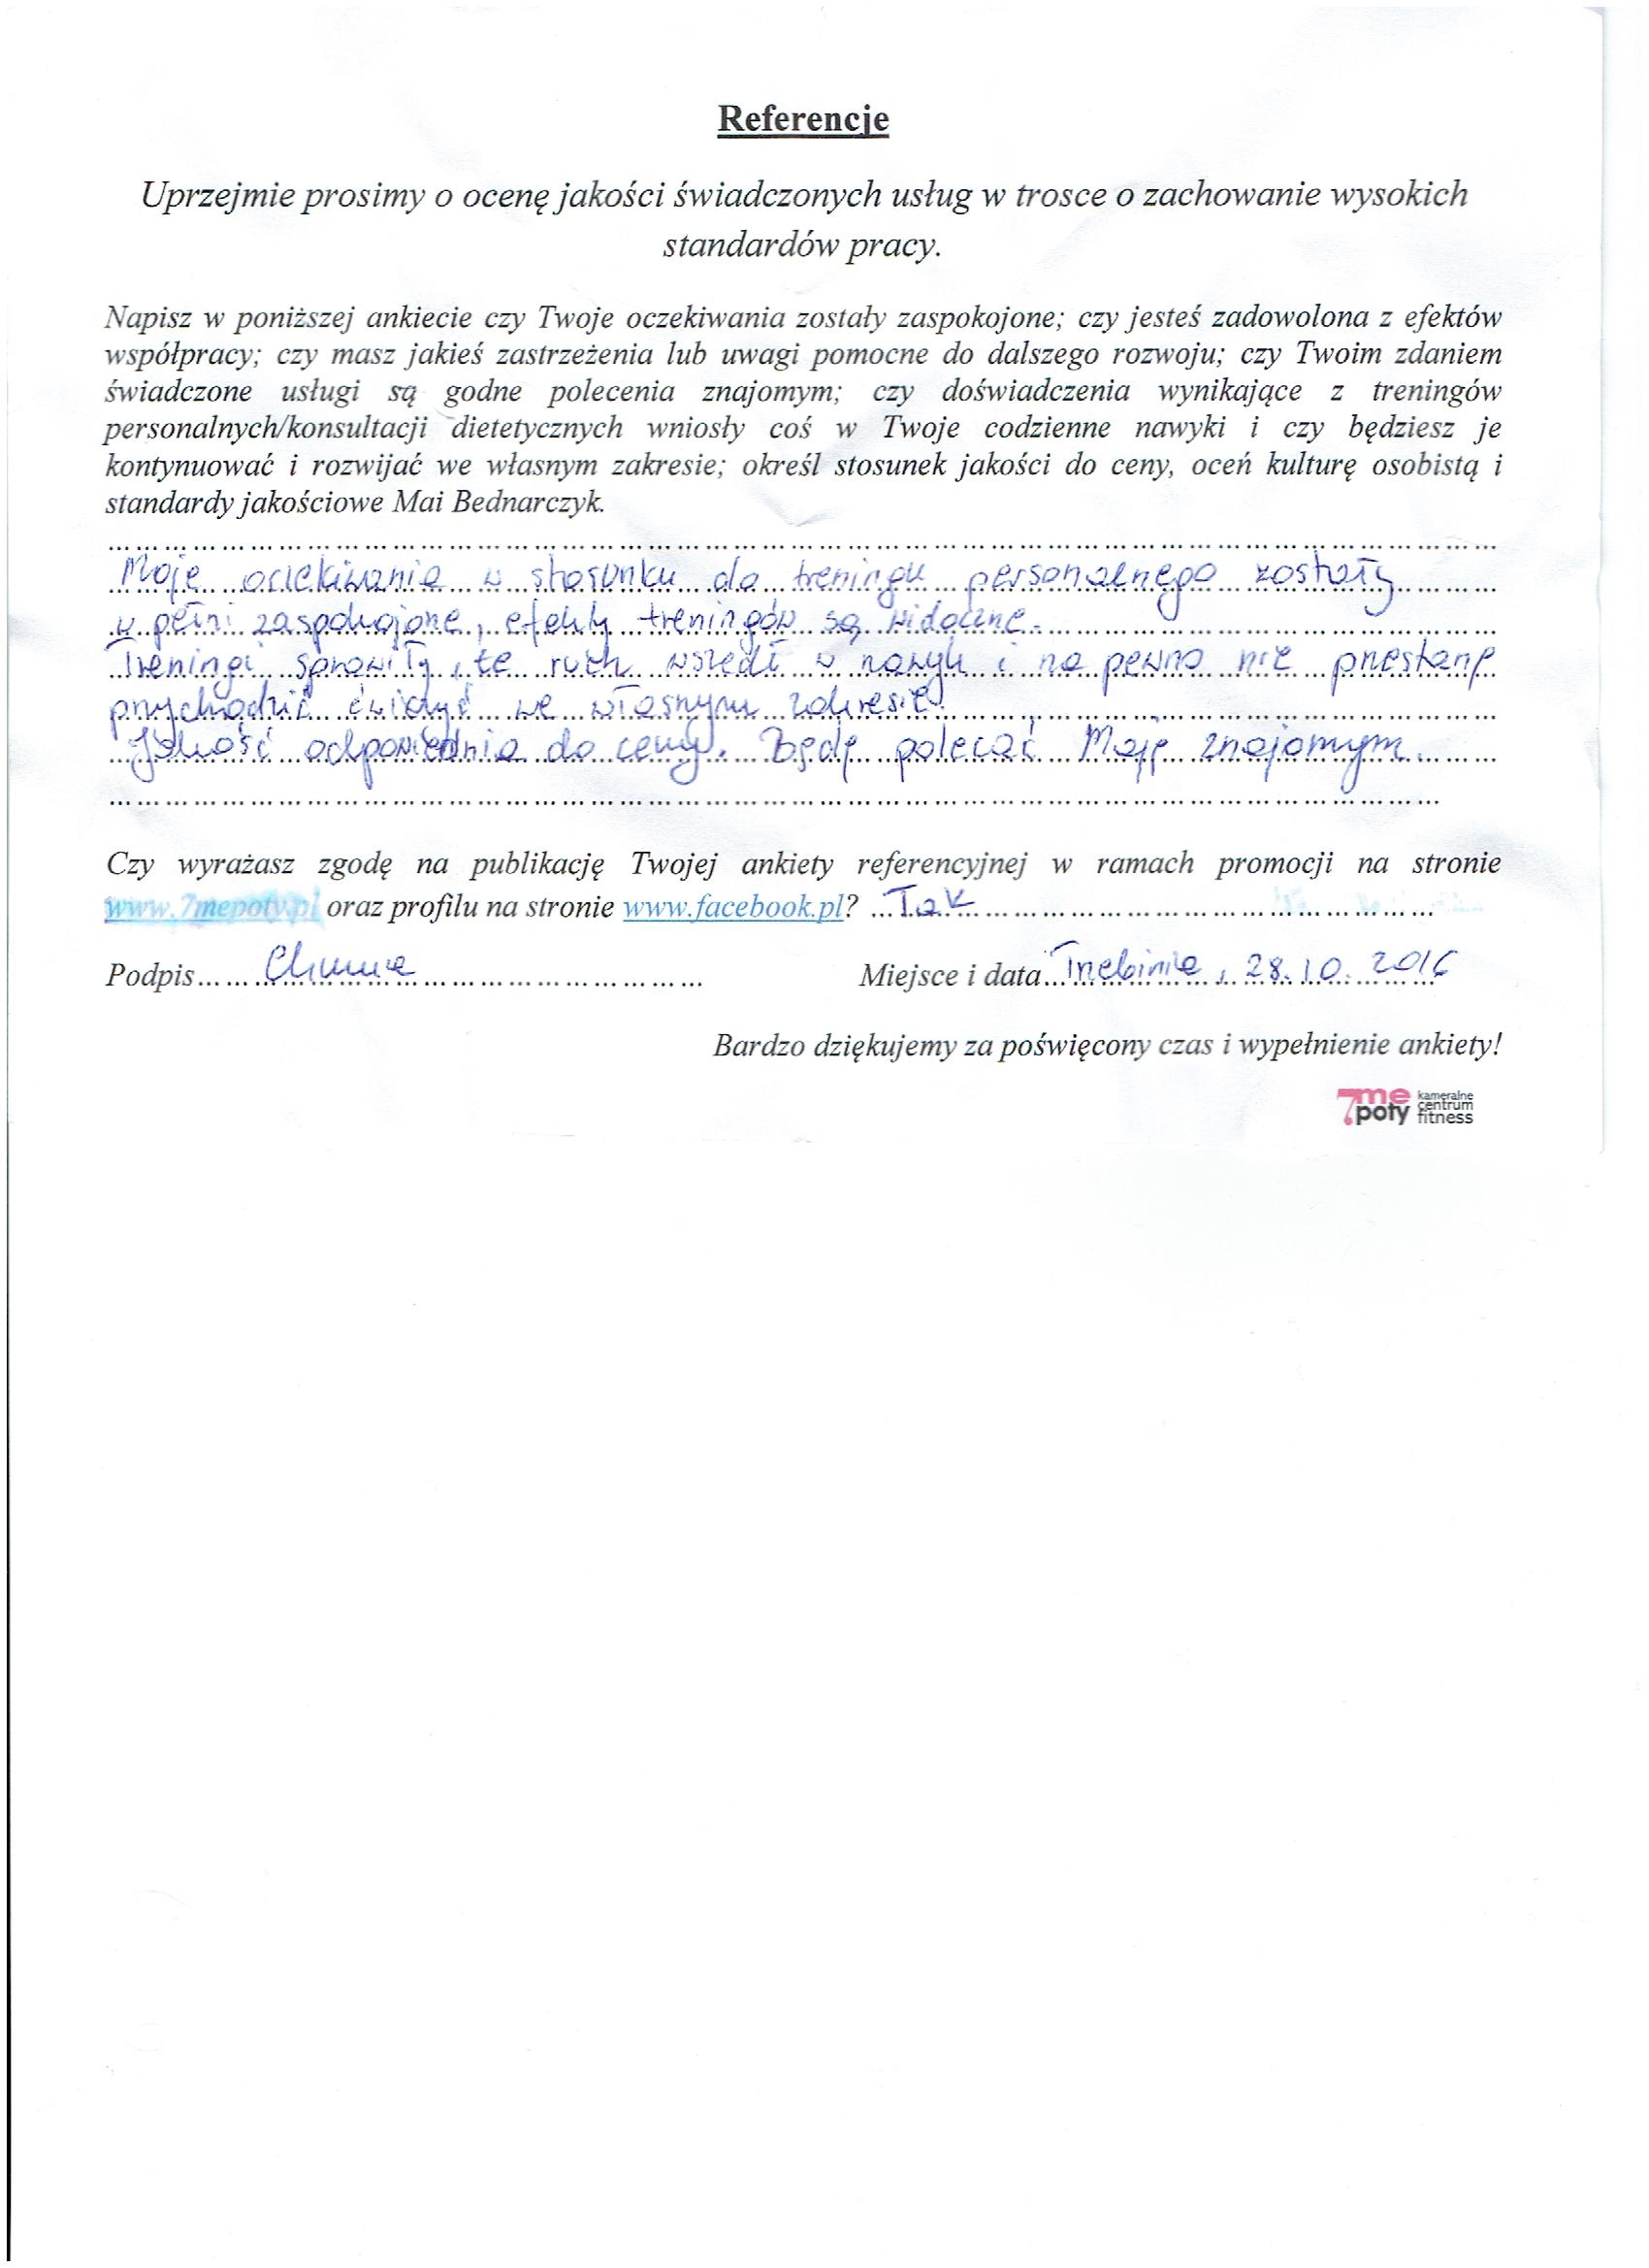 Referencje
Uprzejmie prosimy o ocenę jakości świadczonych usług w trosce o zachowanie wysokich
standardów pracy.
Napisz w poniższej ankiecie czy Twoje oczekiwania zostały zaspokojone; czy jesteś zadowolona z efektów
współpracy; czy masz jakieś zastrzeżenia lub uwagi pomocne do dalszego rozwoju; czy Twoim zdaniem
świadczone usługi są godne polecenia znajomym; czy doświadczenia wynikające z treningów
personalnych/konsultacji dietetycznych wniosły coś w Twoje codzienne nawyki i czy będziesz je
kontynuować i rozwijać we własnym zakresie; określ stosunek jakości do ceny, oceń kulturę osobistą i
standardy jakościowe Mai Bednarczyk.
Moje oczekiwania w stosunku do treningu personalnego zostały
w pełni zaspokojone, efekty treningów są widoczne.
Treningi sprawiły, że ruch wszedł w nawyk i na pewno nie przestanę
przychodzić ćwiczyć we własnym zakresie.
Jakość odpowiednia do ceny. Będę polecać Maję znajomym.
Czy wyrażasz zgodę na publikację Twojej ankiety referencyjnej w ramach promocji na stronie
www.7mepoty.pl oraz profilu na stronie www.facebook.pl? Tak
Podpis Miejsce i data Trzebinia, 28.10.2016
Bardzo dziękujemy za poświęcony czas i wypełnienie ankiety!
7me poty kameralne centrum fitness